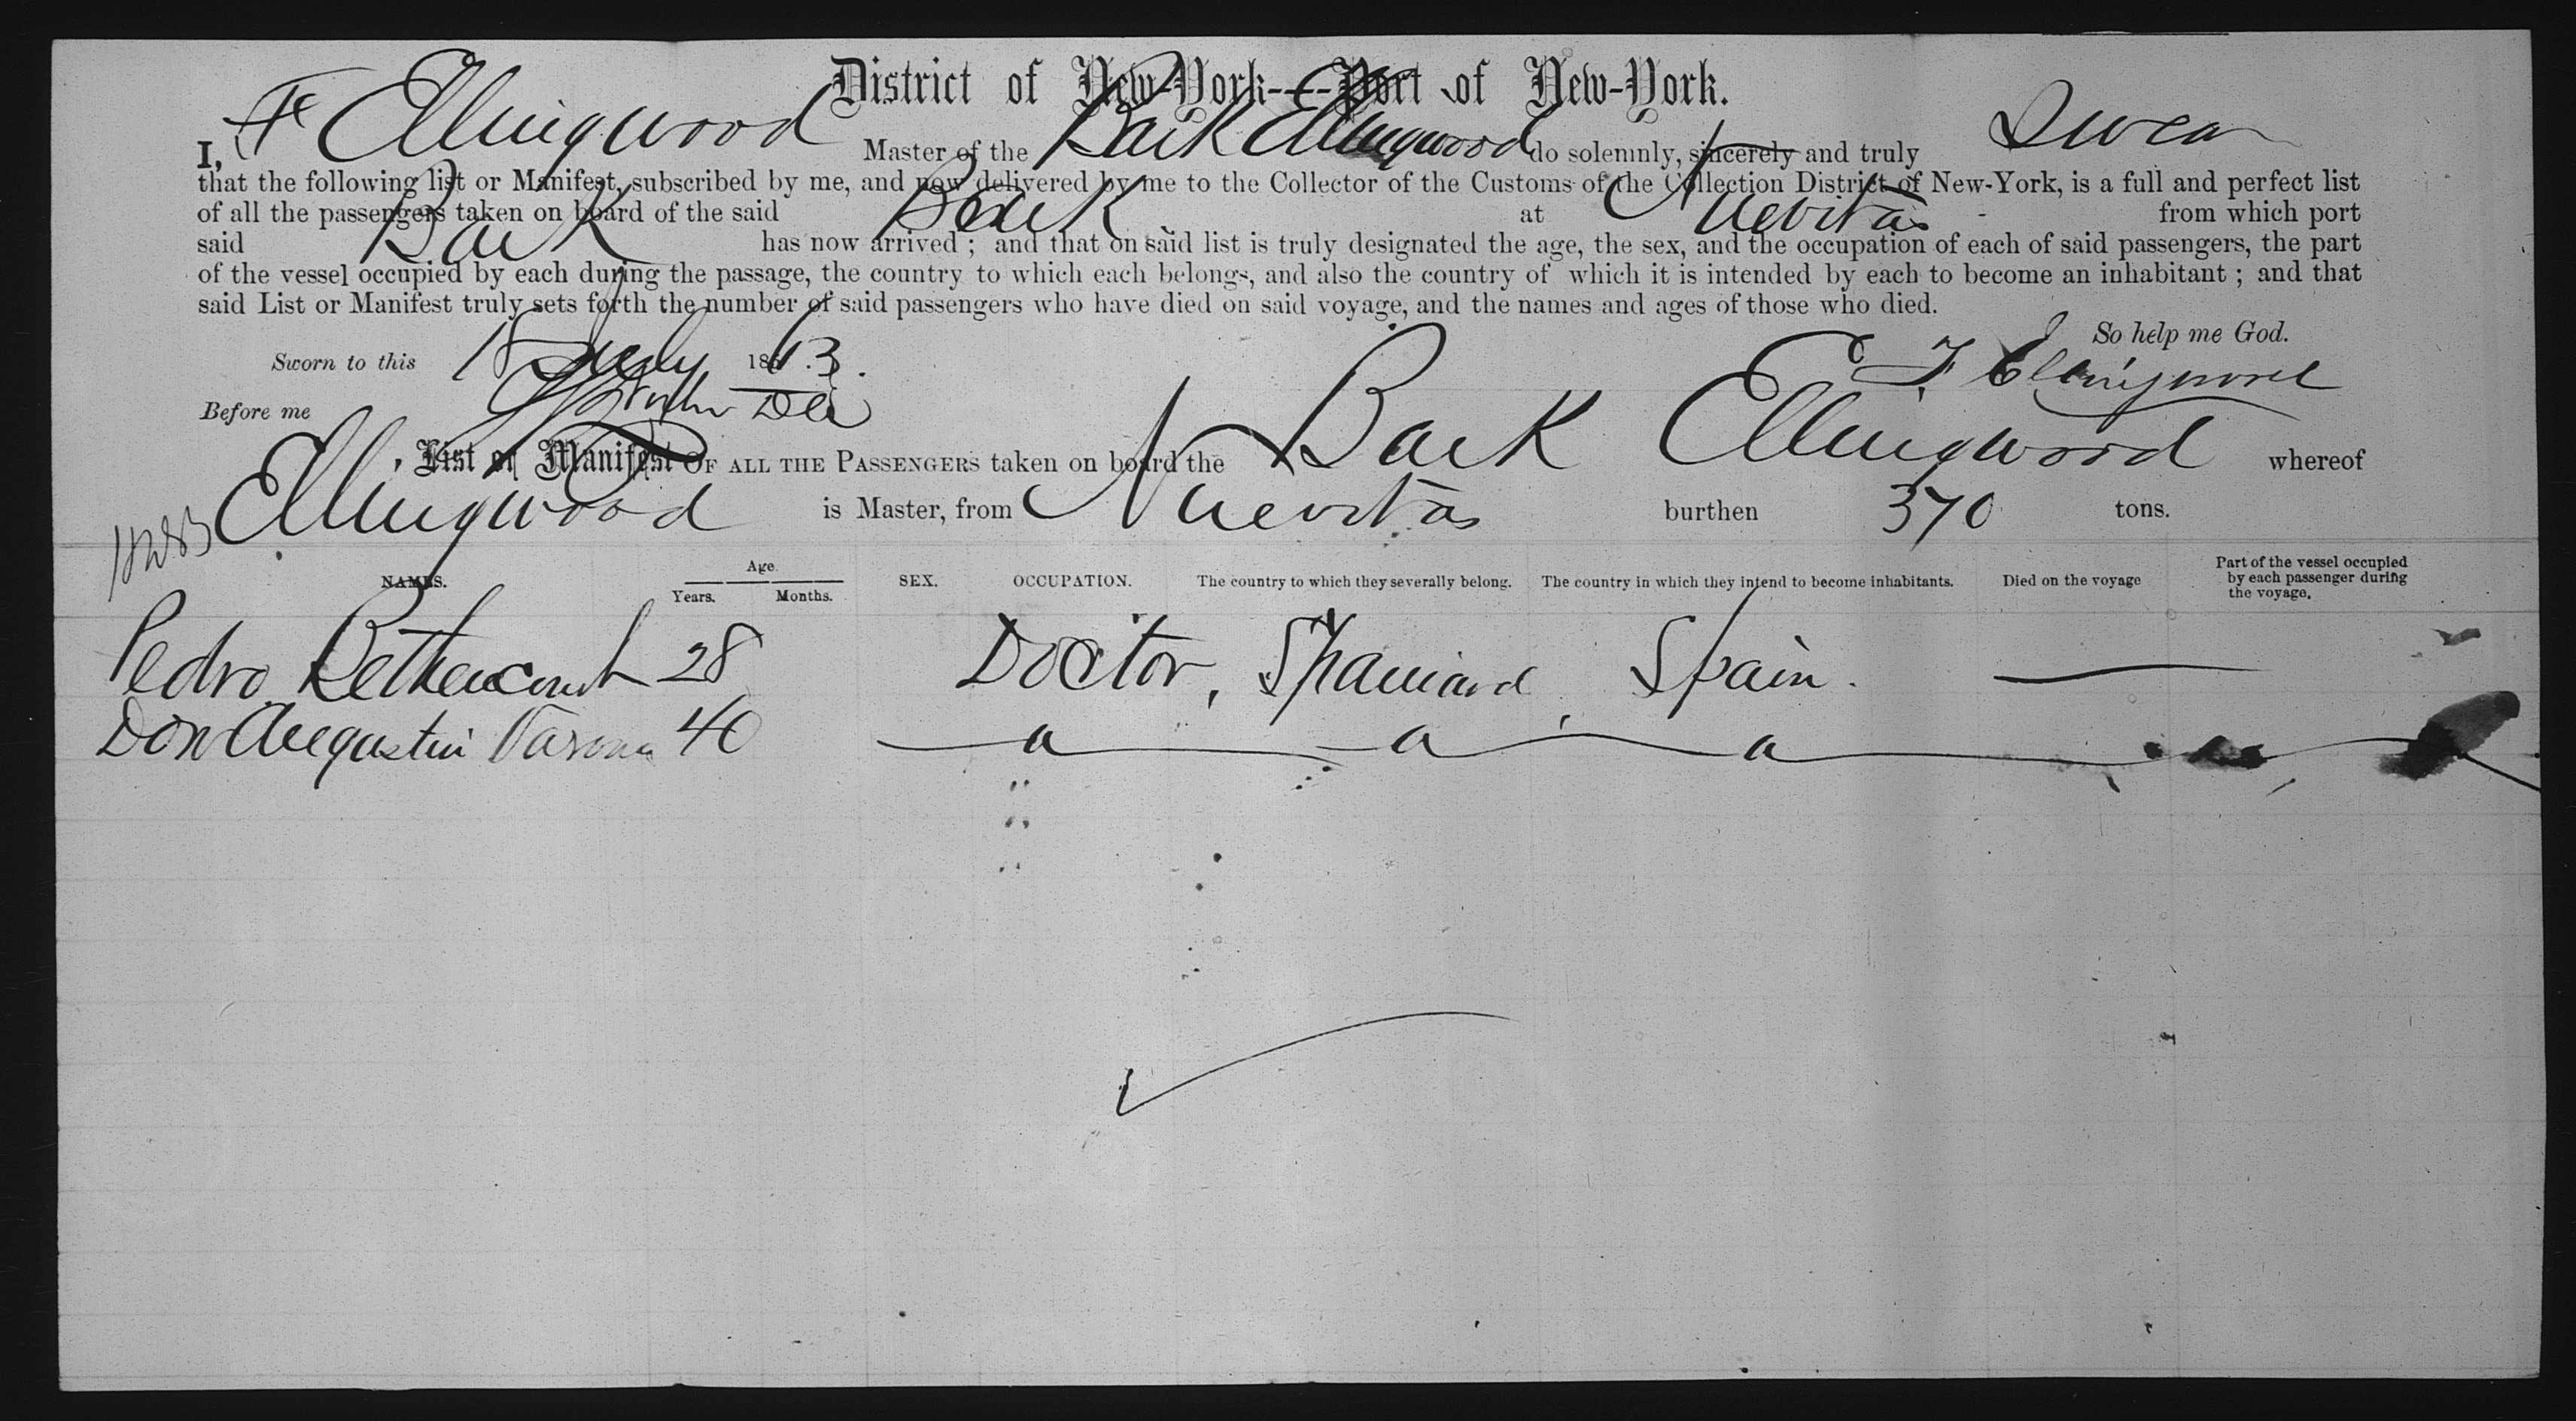 District of New-York---Port of New-York.
I, F Ellingwood Master of the Bark Ellingwood do solemnly, sincerely and truly Swear
that the following list or Manifest, subscribed by me, and now delivered by me to the Collector of the Customs of the Collection District of New-York, is a full and perfect list
of all the passengers taken on board of the said Bark at Nuevitas from which port
said Bark has now arrived ; and that on said list is truly designated the age, the sex, and the occupation of each of said passengers, the part
of the vessel occupied by each during the passage, the country to which each belongs, and also the country of which it is intended by each to become an inhabitant ; and that
said List or Manifest truly sets forth the number of said passengers who have died on said voyage, and the names and ages of those who died.
So help me God.
Sworn to this 18 July 1863.
F Ellingwood
Before me
List or Manifest OF ALL THE PASSENGERS taken on board the Bark Ellingwood whereof
Ellingwood is Master, from Nuevitas burthen 370 tons.
NAMES. Age Years. Months. SEX. OCCUPATION. The country to which they severally belong. The country in which they intend to become inhabitants. Died on the voyage Part of the vessel occupied by each passenger during the voyage.
Pedro Bethencourt 28 Doctor, Spaniard Spain.
Don Augustin Varona 40 a a a